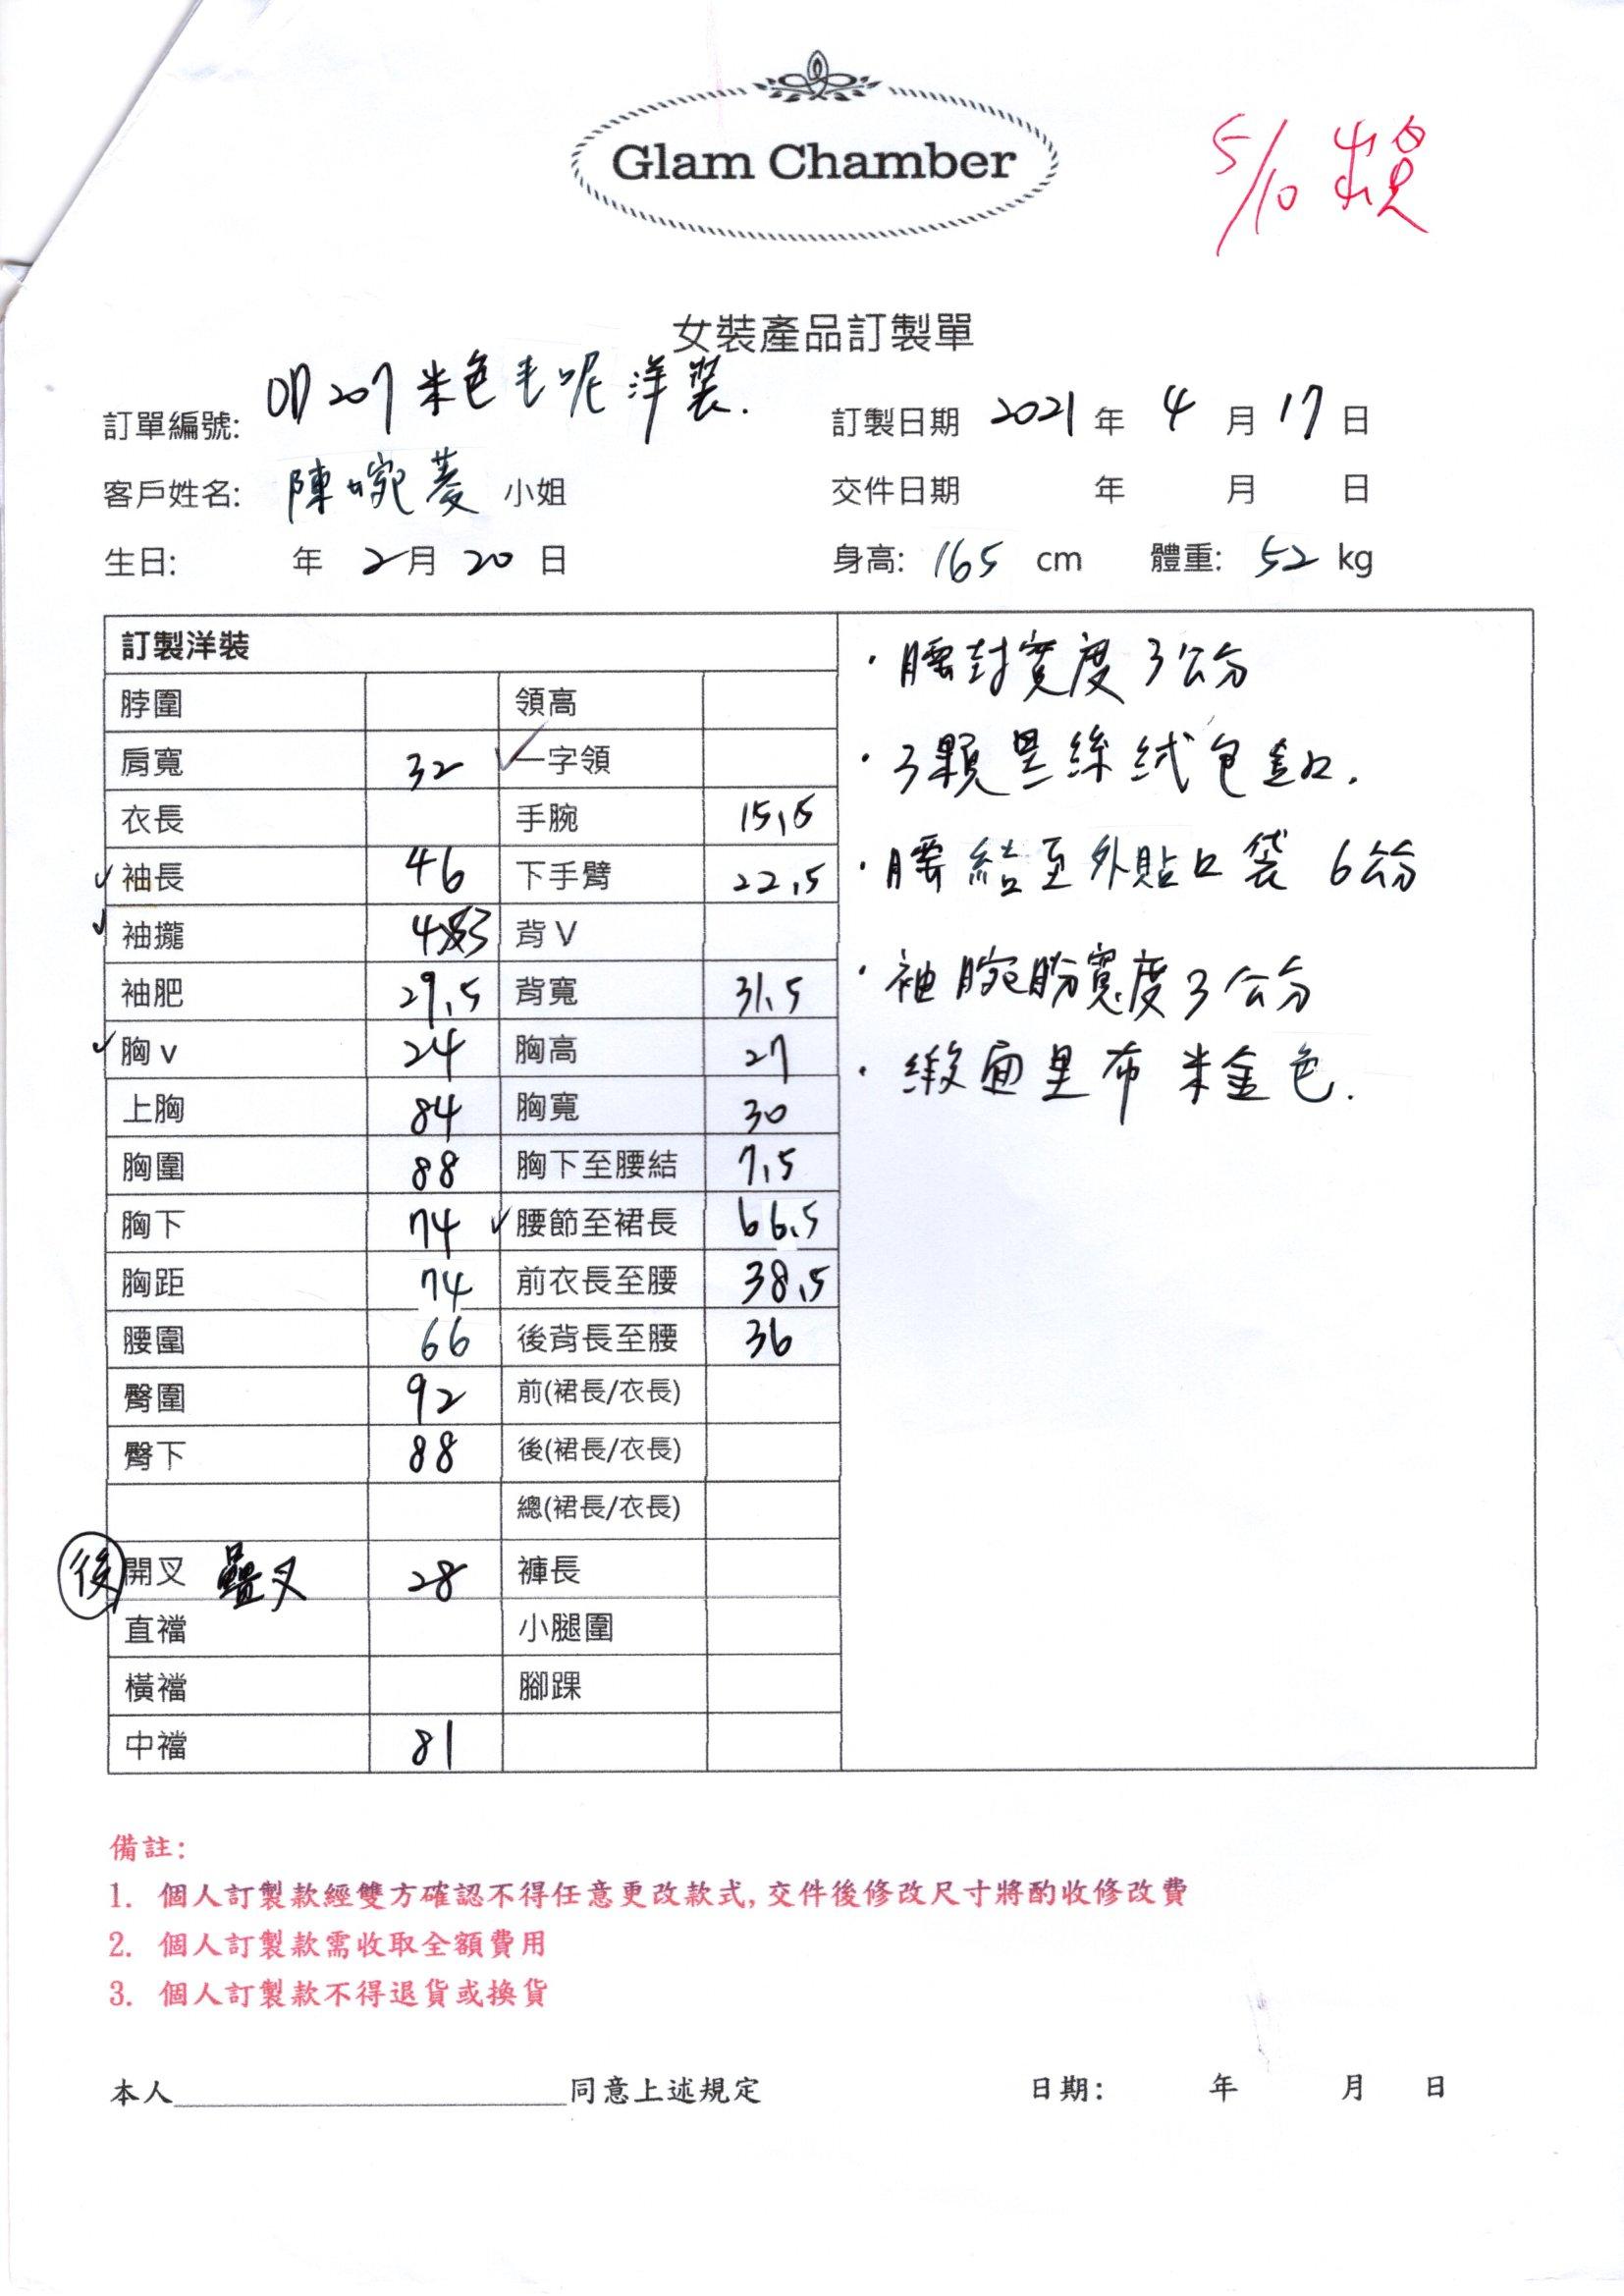 Glam Chamber
5/10 賴
女裝產品訂製單
訂單編號: OD207 米色毛呢洋裝.
訂製日期 2021 年 4 月 17 日
客戶姓名: 陳婉菱 小姐
交件日期 年 月 日
生日: 年 2月 20 日
身高: 165 cm 體重: 52 kg
訂製洋裝
脖圍 領高
肩寬 32 ✓一字領
衣長 手腕 15.5
✓袖長 46 下手臂 22.5
✓袖攏 43 背V
袖肥 29.5 背寬 31.5
✓胸v 24 胸高 27
上胸 84 胸寬 30
胸圍 88 胸下至腰結 7.5
胸下 74 ✓腰節至裙長 66.5
胸距 74 前衣長至腰 38.5
腰圍 66 後背長至腰 36
臀圍 92 前(裙長/衣長)
臀下 88 後(裙長/衣長)
總(裙長/衣長)
後 開叉 疊叉 28 褲長
直襠 小腿圍
橫襠 腳踝
中襠 81
·腰封寬度3公分
·3顆黑絲絨包釦.
·腰結至外貼口袋 6公分
·袖腕盼寬度3公分
·緞面里布 米金色.
備註:
1. 個人訂製款經雙方確認不得任意更改款式,交件後修改尺寸將酌收修改費
2. 個人訂製款需收取全額費用
3. 個人訂製款不得退貨或換貨
本人____________________同意上述規定 日期: 年 月 日